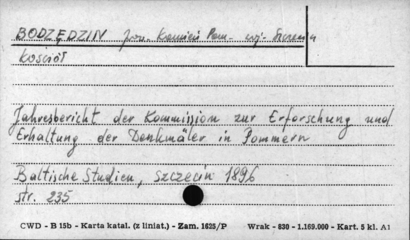 BODZĘDZIN pow. Kamień Pom. woj.
Kościół
Jahresbericht der Kommission zur Erforschung und
Erhaltung der Denkmäler in Pommern
Baltische Studien, Szczecin 1896
str. 235
CWD - B 15b - Karta katal. (z liniat.) - Zam. 1625/P Wrak - 830 - 1.169.000 - Kart. 5 kl. A1